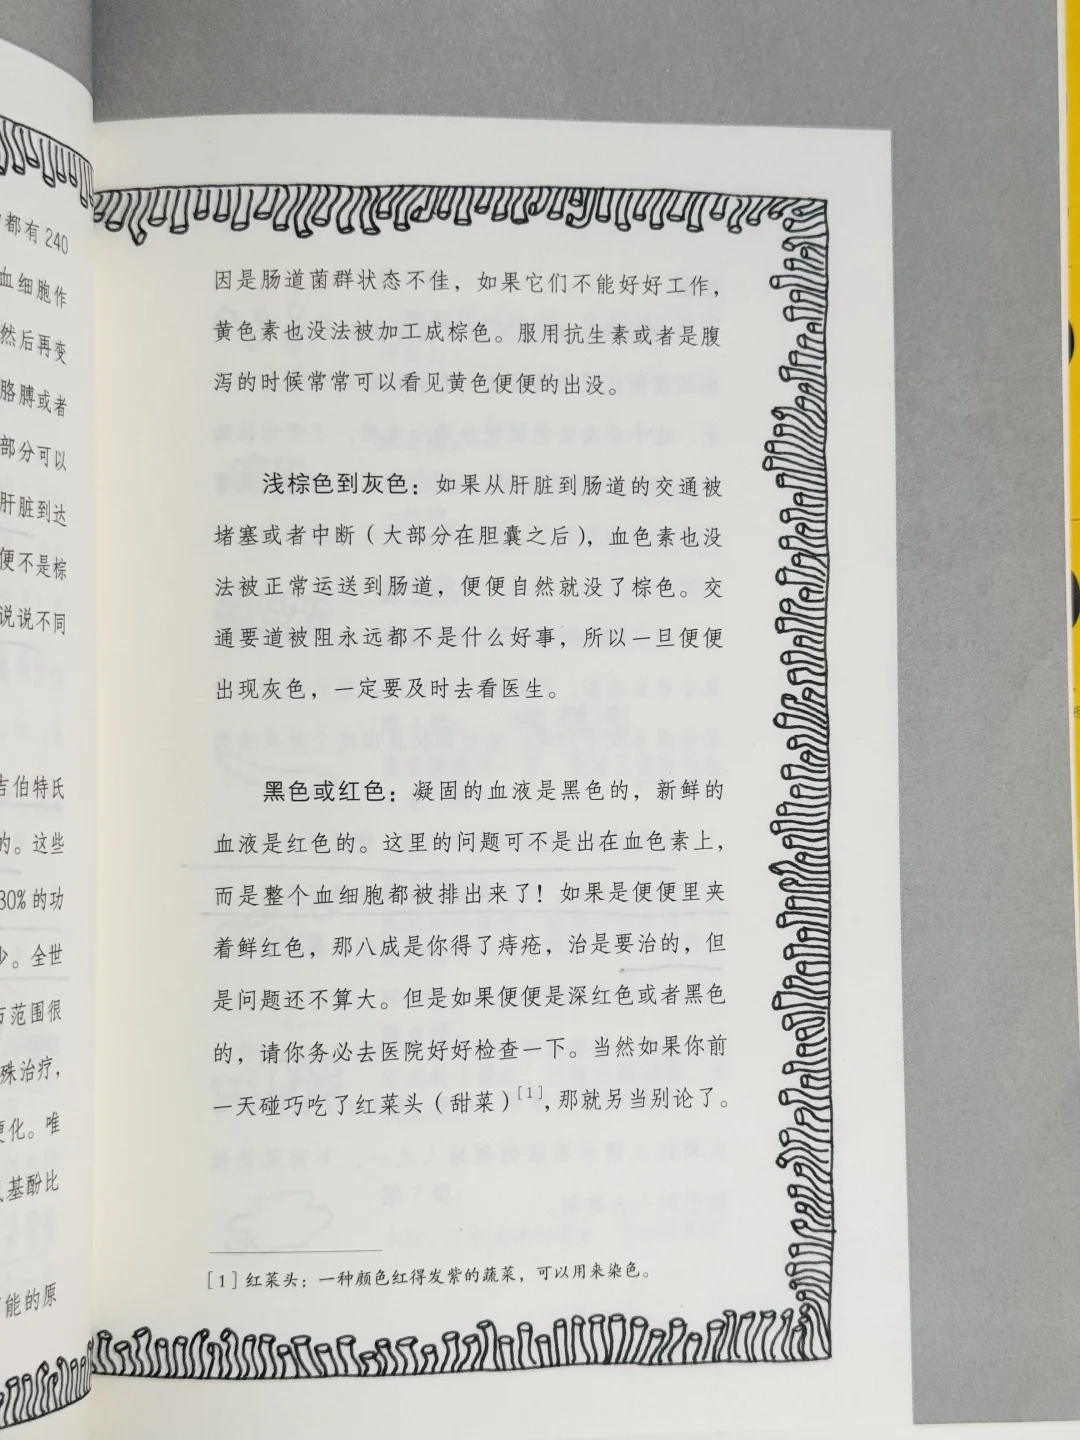 都有240
血细胞作
然后再变
胳膊或者
部分可以
肝脏到达
便不是棕
说说不同
吉伯特氏
的。这些
30%的功
少。全世
范围很
殊治疗，
硬化。唯
基酚比
能的原
因是肠道菌群状态不佳，如果它们不能好好工作，
黄色素也没法被加工成棕色。服用抗生素或者是腹
泻的时候常常可以看见黄色便便的出没。
浅棕色到灰色：如果从肝脏到肠道的交通被
堵塞或者中断（大部分在胆囊之后），血色素也没
法被正常运送到肠道，便便自然就没了棕色。交
通要道被阻永远都不是什么好事，所以一旦便便
出现灰色，一定要及时去看医生。
黑色或红色：凝固的血液是黑色的，新鲜的
血液是红色的。这里的问题可不是出在血色素上，
而是整个血细胞都被排出来了！如果是便便里夹
着鲜红色，那八成是你得了痔疮，治是要治的，但
是问题还不算大。但是如果便便是深红色或者黑色
的，请你务必去医院好好检查一下。当然如果你前
一天碰巧吃了红菜头（甜菜）[1]，那就另当别论了。
[1] 红菜头：一种颜色红得发紫的蔬菜，可以用来染色。